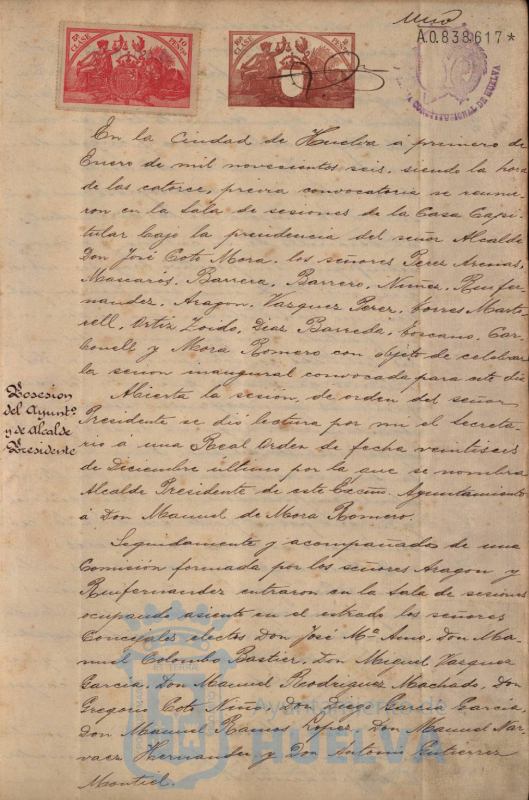 Uno
A.0.838.617*
CONSTITUCIONAL DE HUELVA
En la Ciudad de Huelva á primero de
Enero de mil novecientos seis, siendo la hora
de las catorce, previa convocatoria se reunie-
ron en la Sala de sesiones de la Casa Capi-
tular bajo la presidencia del señor Alcalde
Don José Coto Mora, los señores Perez Arenas,
Mascarós, Barrera, Barrero, Nuñez, Renfer-
nandez, Aragon, Vazquez Perez, Torres Marto-
rell, Ortiz Zoido, Diaz Barreda, Toscano, Car-
bonell y Mora Romero con objeto de celebrar
la sesion inaugural convocada para este dia
Posesion
del Ayuntº
y de Alcalde
Presidente
Abierta la sesión, de orden del señor
Presidente se dió lectura por mi el secreta-
rio á una Real Orden de fecha veintiseis
de Diciembre último por la que se nombra
Alcalde Presidente de este Excmo. Ayuntamiento
á Don Manuel de Mora Romero.
Seguidamente y acompañados de una
Comisión formada por los señores Aragon y
Renfernandez entraron en la Sala de sesiones
ocupando asiento en el estrado los señores
Concejales electos Don José Mª Amo, Don Ma-
nuel Colombo Bastier, Don Miguel Vazquez
Garcia, Don Manuel Rodriguez Machado, Don
Gregorio Coto Niño, Don Diego Garcia Garcia,
Don Manuel Ramos Lopez, Don Manuel Nar-
vaez Hernandez y Don Antonio Gutierrez
Montiel.
Ayuntamiento de
HUELVA